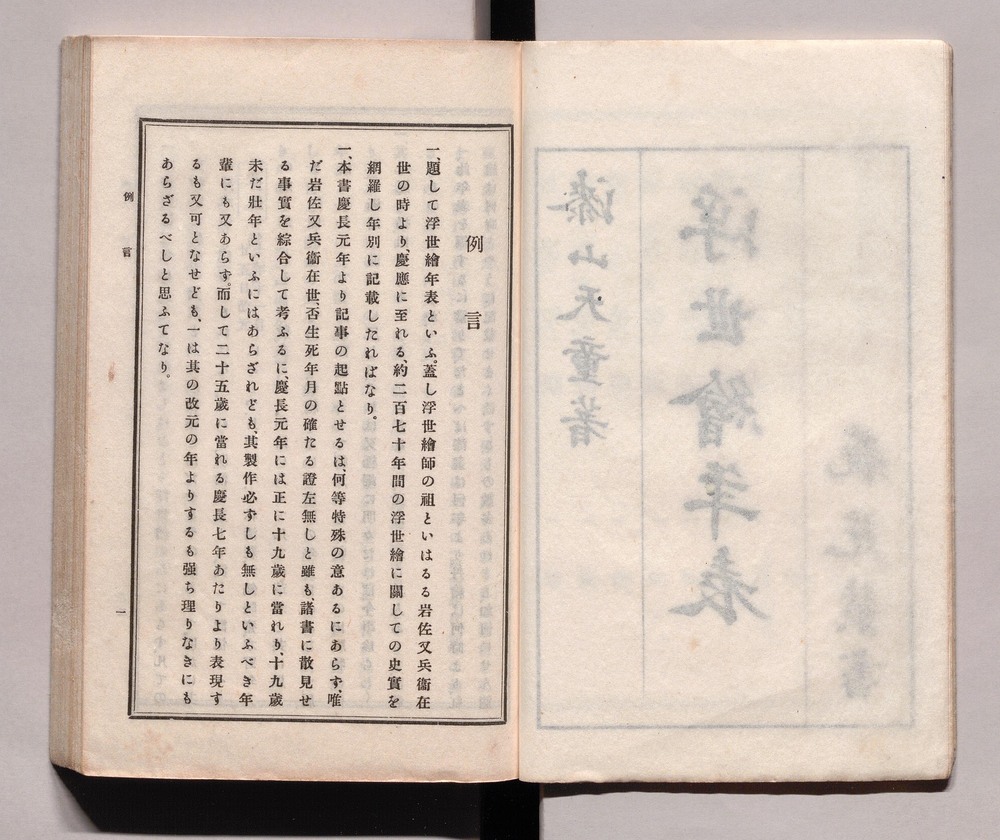 浮世繪年表
漆山天童著
例言
一、題して浮世繪年表といふ。蓋し浮世繪師の祖といはるる岩佐又兵衞在
世の時より、慶應に至れる、約二百七十年間の浮世繪に關しての史實を
網羅し年別に記載したればなり。
一、本書慶長元年より記事の起點とせるは、何等特殊の意あるにあらず、唯
だ岩佐又兵衞在世、否生死年月の確たる證左無しと雖も、諸書に散見せ
る事實を綜合して考ふるに、慶長元年には正に十九歳に當れり、十九歳
未だ壯年といふにはあらざれども、其製作必ずしも無しといふべき年
輩にも又あらず。而して二十五歳に當れる慶長七年あたりより表現す
るも又可となせども、一は其の改元の年よりするも强ち理りなきにも
あらざるべしと思ふてなり。
例言
一